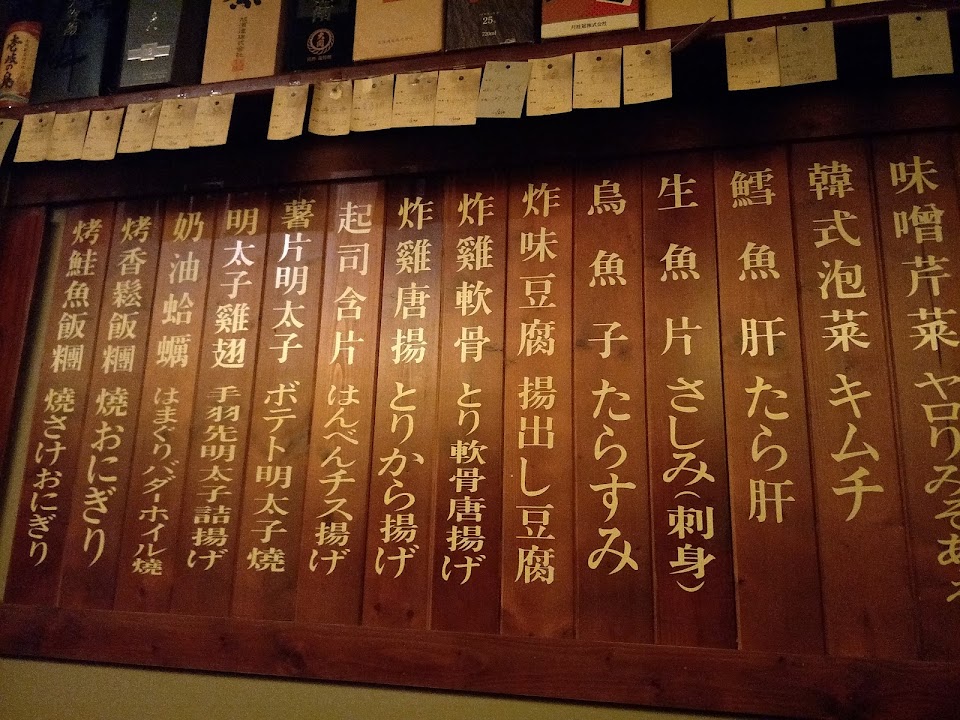 味噌芹菜 ヤロリみそあ
韓式泡菜 キムチ
鱈魚肝 たら肝
生魚片 さしみ(刺身)
烏魚子 たらすみ
炸味豆腐 揚出し豆腐
炸雞軟骨 とり軟骨唐揚げ
炸雞唐揚 とりから揚げ
起司含片 はんぺんチス揚げ
薯片明太子 ボテト明太子燒
明太子雞翅 手羽先明太子詰揚げ
奶油蛤蠣 はまぐりバダーホイル燒
烤香鬆飯糰 燒おにぎり
烤鮭魚飯糰 燒さけおにぎり
壱岐の島
25
720ml